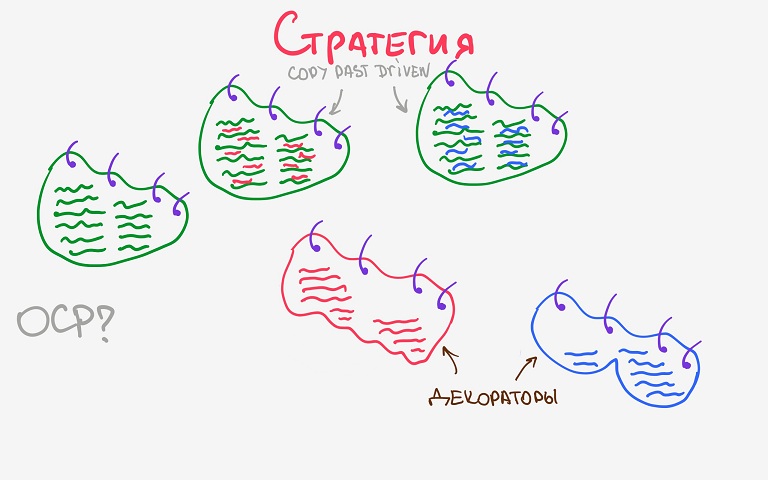 Стратегия
COPY PAST DRIVEN
OCP?
ДЕКОРАТОРЫ